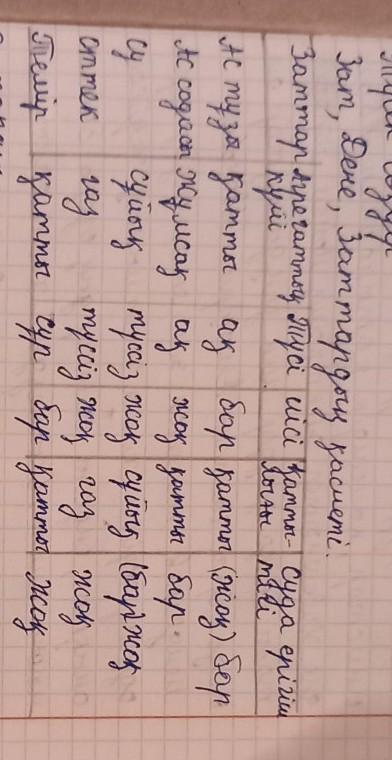 Зат, Дене, Заттардың қасиеті.
Заттар Агрегаттық күйі Түсі иісі қатты-лығы суда ерігіштігі
Ас тұзы қатты ақ бар қатты (жоқ) бар
Ас содасы жұмсақ ақ жоқ қатты бар.
су сұйық түсіз жоқ сұйық (бар) жоқ
оттек газ түссіз жоқ газ жоқ
Темір қатты сұр бар қатты жоқ